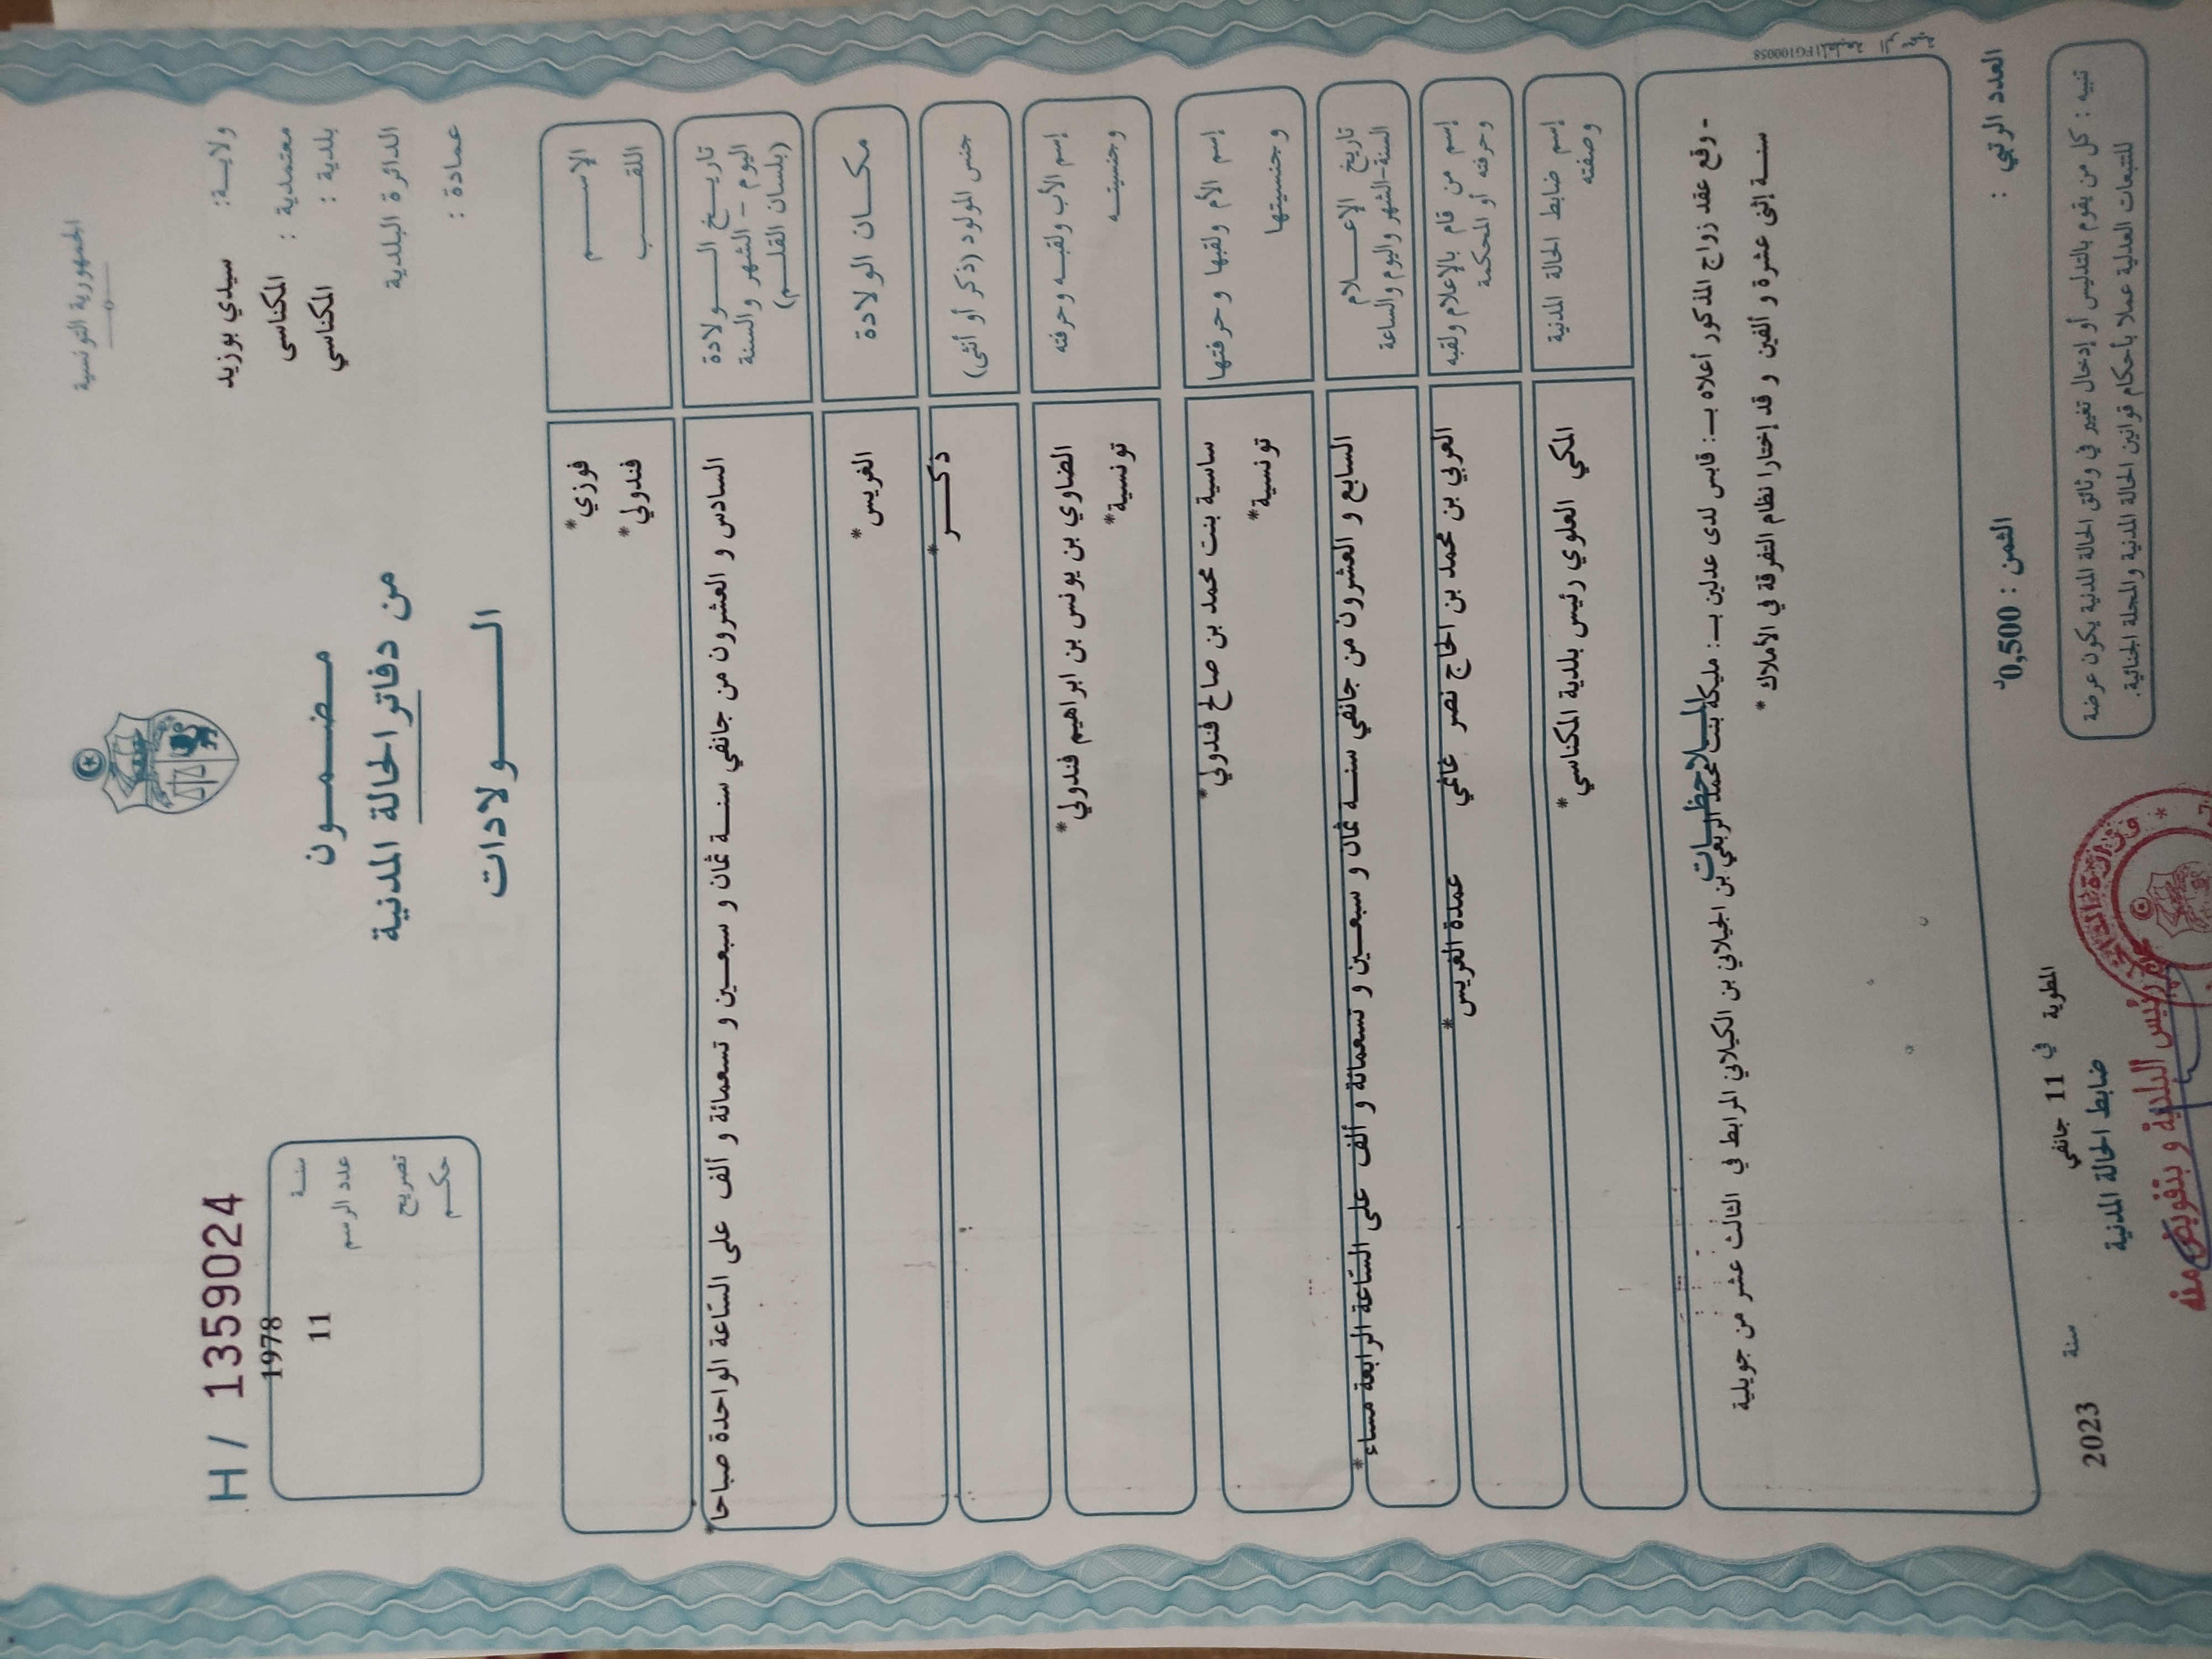 الجمهورية التونسية
ولاية: سيدي بوزيد
معتمدية : المكناسى
بلدية : المكناسي
الدائرة البلدية
عمادة :
مضمون
من دفاتر الحالة المدنية
الولادات
H / 1359024
سنة 1978
عدد الرسم 11
تصريح
حكم
الاسم
فوزي*
اللقب
فندولي*
تاريخ الولادة
اليوم - الشهر والسنة
(بلسان القلم)
السادس و العشرون من جانفي سنة ثمان و سبعين و تسعمائة و ألف على الساعة الواحدة صباحا*
مكان الولادة
الغريس*
جنس المولود (ذكر أو أنثى)
ذكر*
إسم الأب ولقبه وحرفته
الضاوي بن يونس بن ابراهيم فندولي*
وجنسيته
تونسية*
إسم الأم ولقبها وحرفتها
ساسية بنت محمد بن صالح فندولي*
وجنسيتها
تونسية*
تاريخ الإعلام
السنة-الشهر واليوم والساعة
السابع و العشرون من جانفي سنة ثمان و سبعين و تسعمائة و ألف على الساعة الرابعة مساء*
إسم من قام بالإعلام ولقبه
وحرفته أو المحكمة
العربي بن محمد بن الحاج نصر غانمي عمدة الغريس*
إسم ضابط الحالة المدنية
وصفته
المكي العلوي رئيس بلدية المكناسي*
الملاحظات
- وقع عقد زواج المذكور أعلاه بـ: قابس لدى عدلين بـ: مليكة بنت محمد الربعي بن الجيلاني بن الكيلاني المرابط في الثالث عشر من جويلية
سنة إثنى عشرة و ألفين و قد إختارا نظام التفرقة في الأملاك *
العدد الرتبي :
الثمن : 0,500د
المطوية في 11 جانفي سنة 2023
ضابط الحالة المدنية
تنبيه : كل من يقوم بالتدليس أو إدخال تغيير في وثائق الحالة المدنية يكون عرضة
للتتبعات العدلية عملا بأحكام قوانين الحالة المدنية والمجلة الجنائية.
رئيس البلدية و بتفويض منه